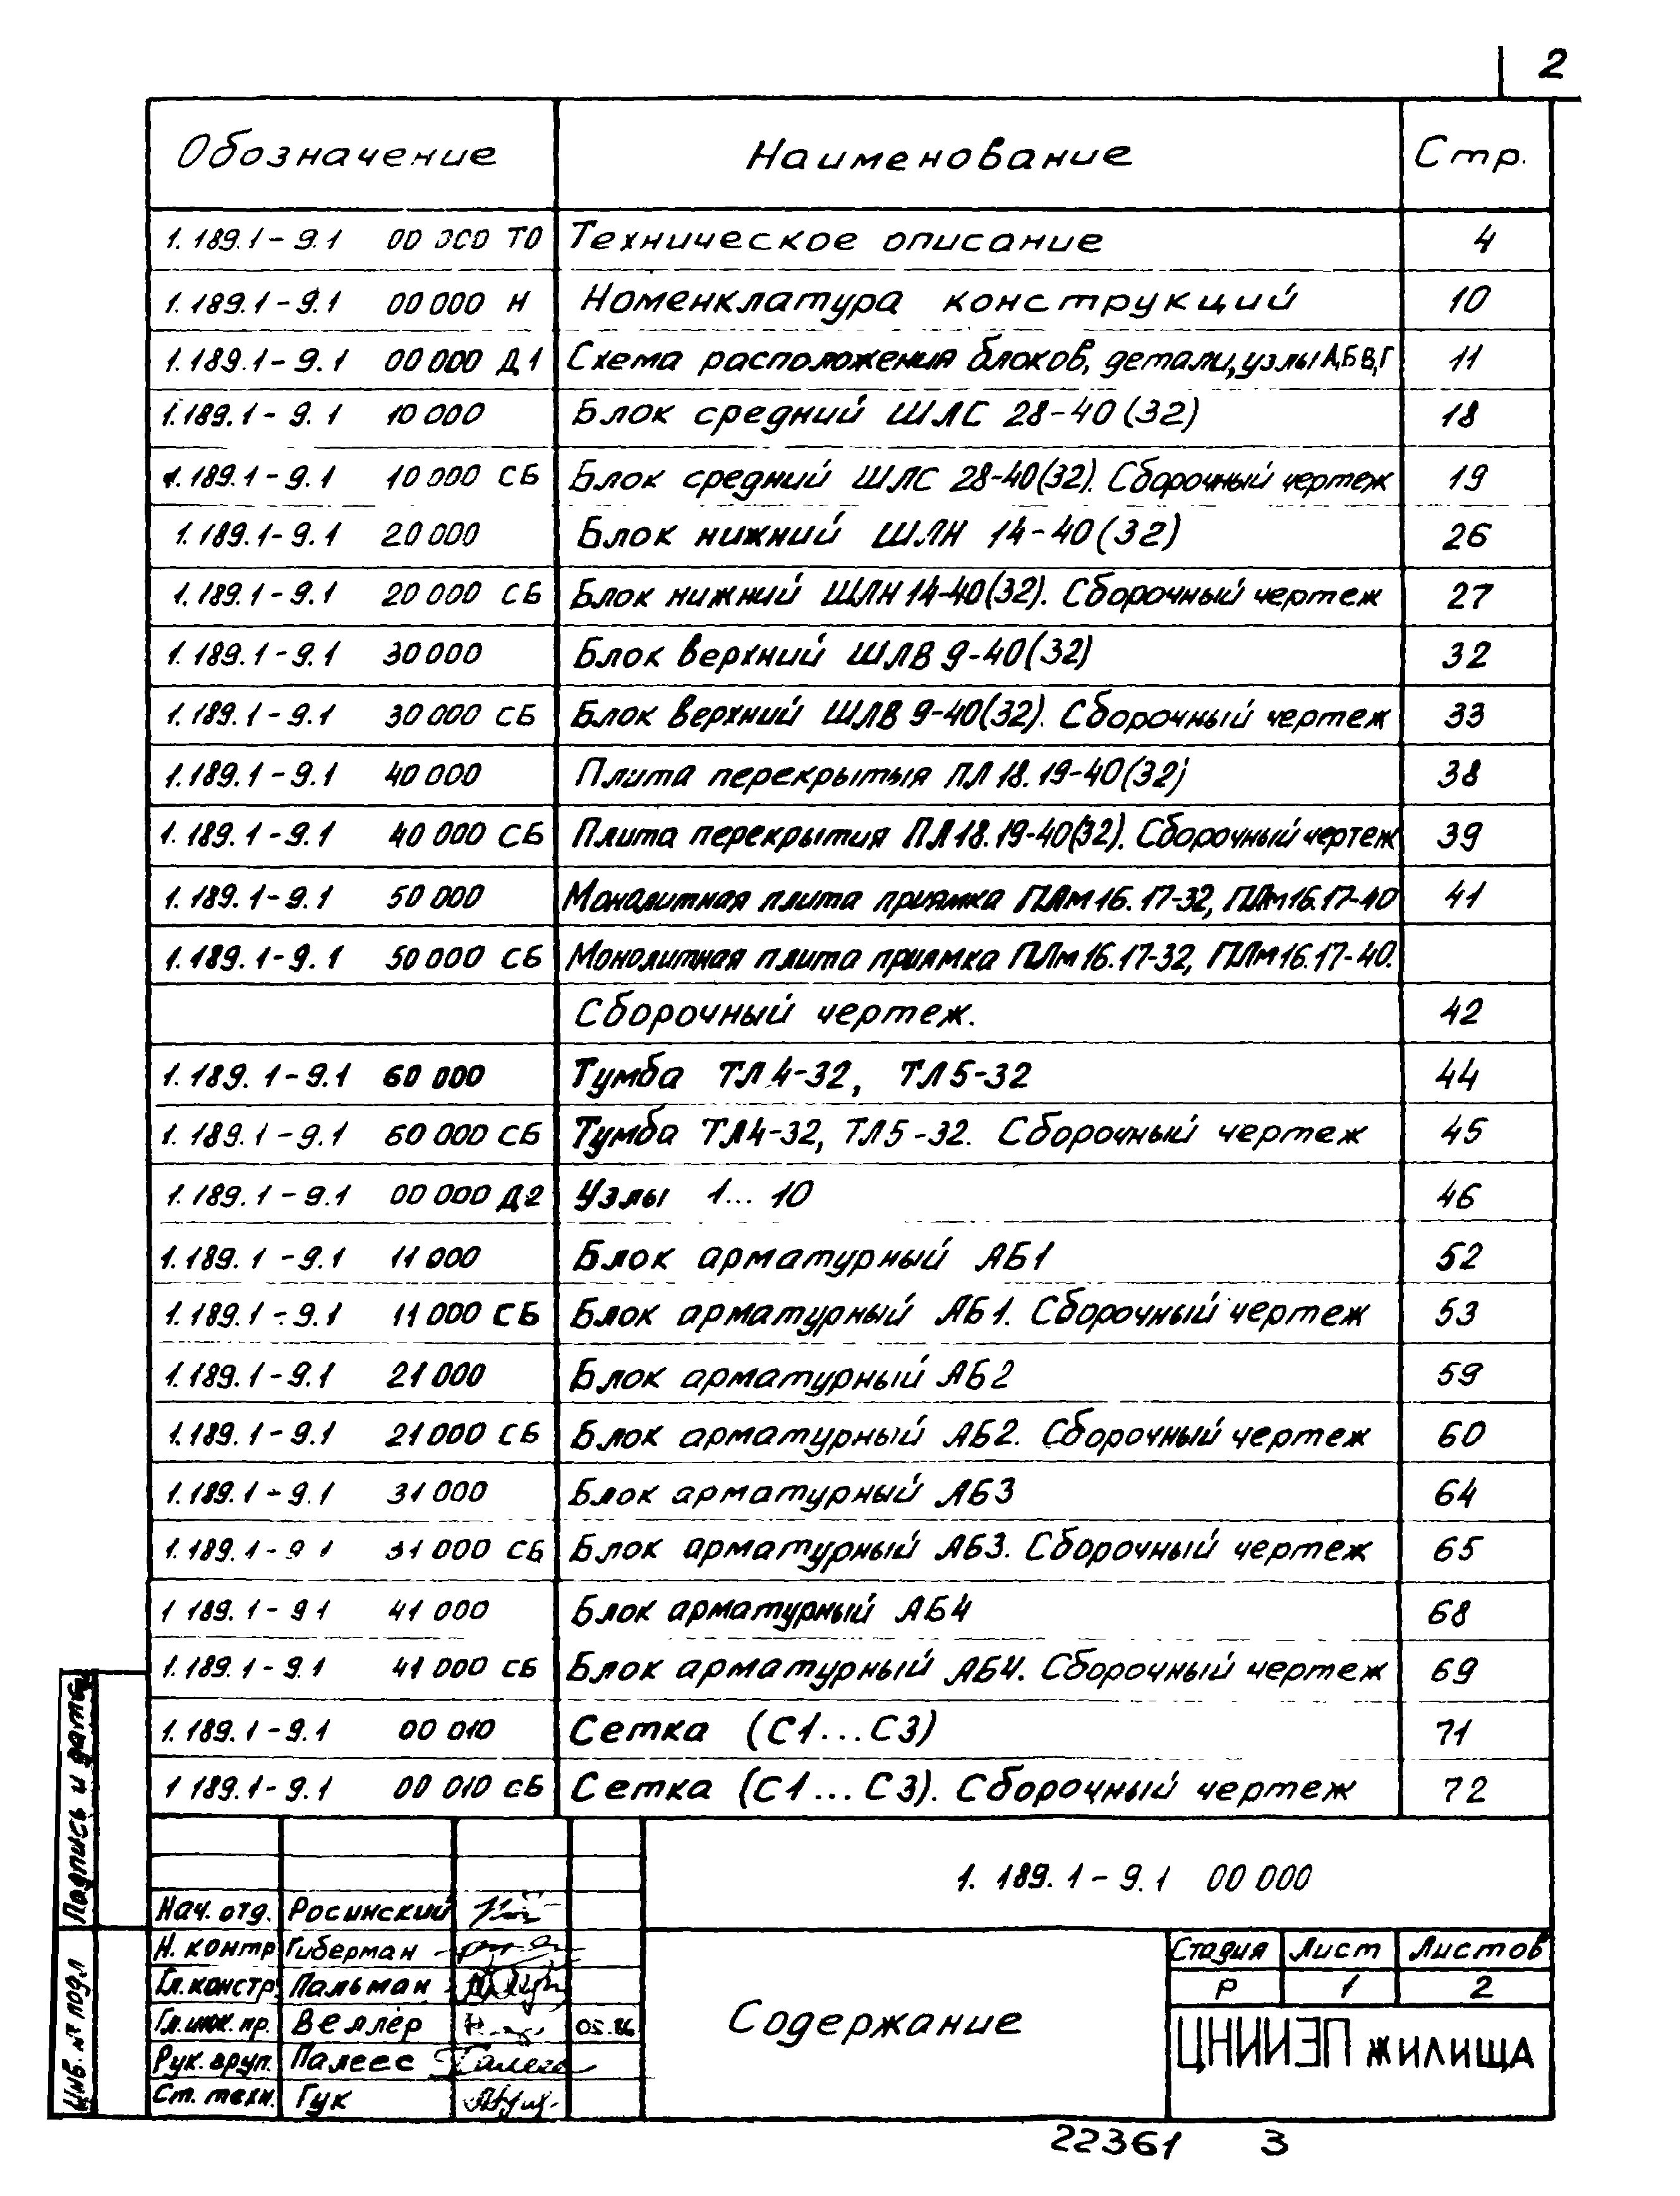 2
Обозначение Наименование Стр.
1.189.1-9.1 00 000 ТО Техническое описание 4
1.189.1-9.1 00 000 Н Номенклатура конструкций 10
1.189.1-9.1 00 000 Д1 Схема расположения блоков, детали, узлы А,Б,В,Г 11
1.189.1-9.1 10 000 Блок средний ШЛС 28-40(32) 18
1.189.1-9.1 10 000 СБ Блок средний ШЛС 28-40(32). Сборочный чертеж 19
1.189.1-9.1 20 000 Блок нижний ШЛН 14-40(32) 26
1.189.1-9.1 20 000 СБ Блок нижний ШЛН 14-40(32). Сборочный чертеж 27
1.189.1-9.1 30 000 Блок верхний ШЛВ 9-40(32) 32
1.189.1-9.1 30 000 СБ Блок верхний ШЛВ 9-40(32). Сборочный чертеж 33
1.189.1-9.1 40 000 Плита перекрытия ПЛ 18.19-40(32) 38
1.189.1-9.1 40 000 СБ Плита перекрытия ПЛ 18.19-40(32). Сборочный чертеж 39
1.189.1-9.1 50 000 Монолитная плита приямка ПЛм 16.17-32, ПЛм 16.17-40 41
1.189.1-9.1 50 000 СБ Монолитная плита приямка ПЛм 16.17-32, ПЛм 16.17-40.
Сборочный чертеж. 42
1.189.1-9.1 60 000 Тумба ТЛ 4-32, ТЛ 5-32 44
1.189.1-9.1 60 000 СБ Тумба ТЛ4-32, ТЛ5-32. Сборочный чертеж 45
1.189.1-9.1 00 000 Д2 Узлы 1...10 46
1.189.1-9.1 11 000 Блок арматурный АБ1 52
1.189.1-9.1 11 000 СБ Блок арматурный АБ1. Сборочный чертеж 53
1.189.1-9.1 21 000 Блок арматурный АБ2 59
1.189.1-9.1 21 000 СБ Блок арматурный АБ2. Сборочный чертеж 60
1.189.1-9.1 31 000 Блок арматурный АБ3 64
1.189.1-9 1 31 000 СБ Блок арматурный АБ3. Сборочный чертеж 65
1 189.1-9 1 41 000 Блок арматурный АБ4 68
1.189.1-9.1 41 000 СБ Блок арматурный АБ4. Сборочный чертеж 69
1.189.1-9.1 00 010 Сетка (С1...С3) 71
1 189.1-9.1 00 010 СБ Сетка (С1...С3). Сборочный чертеж 72
Подпись и дата
Инв. № подл
1.189.1-9.1 00 000
Нач. отд. Росинский
Н. контр Гиберман
Гл. констр. Пальман
Гл. инж. пр. Веллер 05.86
Рук. груп. Палеес Палеес
Ст. техн. Гук
Содержание
Стадия Лист Листов
Р 1 2
ЦНИИЭП жилища
22361 3